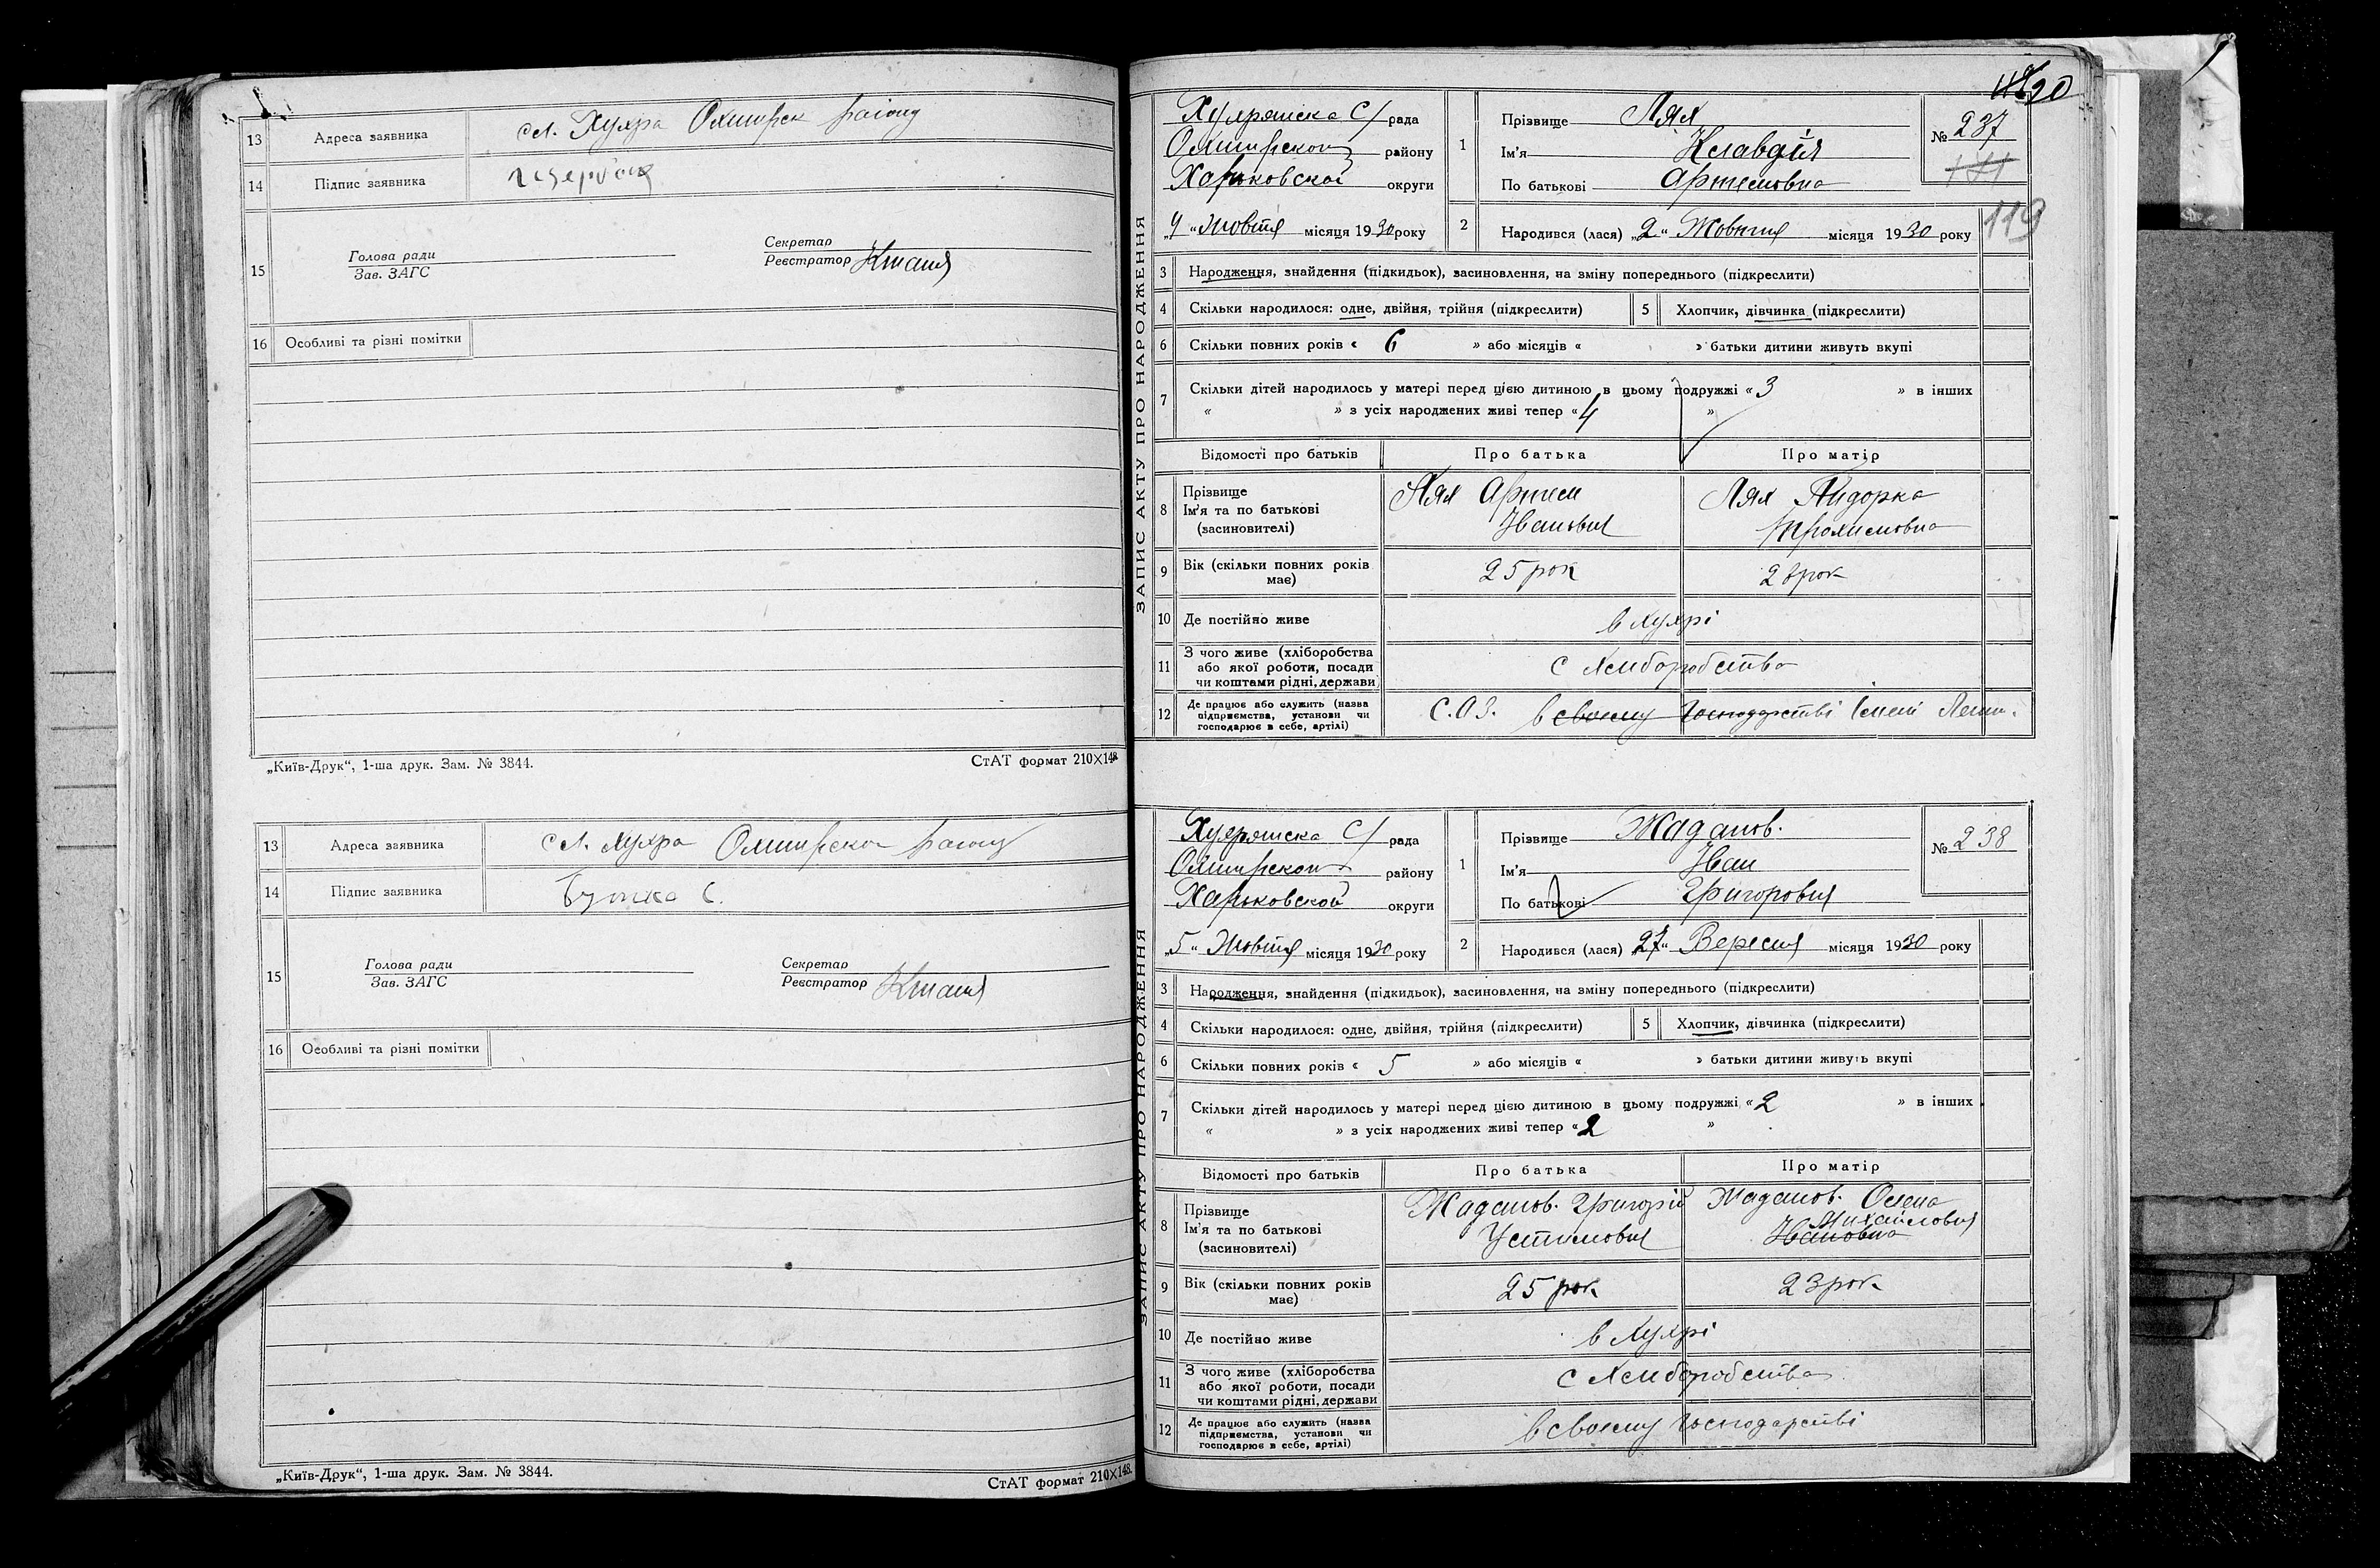 13 Адреса заявника сл. Хухра Охтирск району
14 Підпис заявника
15 Голова ради
Зав. ЗАГС
Секретар
Реєстратор
16 Особливі та різні помітки
„Київ-Друк“, 1-ша друк. Зам. № 3844.
СтАТ формат 210×148
13 Адреса заявника сл. Хухра Охтирской району
14 Підпис заявника Бутко С.
15 Голова ради
Зав. ЗАГС
Секретар
Реєстратор
16 Особливі та різні помітки
„Київ-Друк“, 1-ша друк. Зам. № 3844.
СтАТ формат 210×148.
90
ЗАПИС АКТУ ПРО НАРОДЖЕННЯ
Хухрянска С/рада
Охтирской району
Харьковской округи
„4“ Жовтня місяця 1930 року
1 Прізвище Лях
Ім'я Клавдія
По батькові Артемовна
№ 237
171
119
2 Народився (лася) „2“ Жовтня місяця 1930 року
3 Народження, знайдення (підкидьок), засиновлення, на зміну попереднього (підкреслити)
4 Скільки народилося: одне, двійня, трійня (підкреслити)
5 Хлопчик, дівчинка (підкреслити)
6 Скільки повних років « 6 » або місяців « » батьки дитини живуть вкупі
7 Скільки дітей народилось у матері перед цією дитиною в цьому подружжі « 3 » в інших
« » з усіх народжених живі тепер « 4 »
Відомості про батьків Про батька Про матір
8 Прізвище
Ім'я та по батькові
(засиновителі)
Лях Артем
Іванович
Лях Тидорка
Трохимовна
9 Вік (скільки повних років має) 25 рок 28 рок
10 Де постійно живе в Хухрі
11 З чого живе (хліборобства
або якої роботи, посади
чи коштами рідні, держави)
с хлиборобства
12 Де працює або служить (назва
підприємства, установи чи
господарює в себе, артілі)
С.О.З. в своему господарстві імені Лени.
ЗАПИС АКТУ ПРО НАРОДЖЕННЯ
Хухрянска С/рада
Охтирской району
Харьковской округи
„5“ Жовтня місяця 1930 року
1 Прізвище Жаданов.
Ім'я Іван
По батькові Григорович
№ 238
2 Народився (лася) „27“ Вересня місяця 1930 року
3 Народження, знайдення (підкидьок), засиновлення, на зміну попереднього (підкреслити)
4 Скільки народилося: одне, двійня, трійня (підкреслити)
5 Хлопчик, дівчинка (підкреслити)
6 Скільки повних років « 5 » або місяців « » батьки дитини живуть вкупі
7 Скільки дітей народилось у матері перед цією дитиною в цьому подружжі « 2 » в інших
« » з усіх народжених живі тепер « 2 »
Відомості про батьків Про батька Про матір
8 Прізвище
Ім'я та по батькові
(засиновителі)
Жаданов. Григорій
Устимович
Жаданов. Олена
Михайловня
Івановна
9 Вік (скільки повних років має) 25 рок 23 рок
10 Де постійно живе в Хухрі
11 З чого живе (хліборобства
або якої роботи, посади
чи коштами рідні, держави
с хлиборобства
12 Де працює або служить (назва
підприємства, установи чи
господарює в себе, артілі)
в своему господарстві